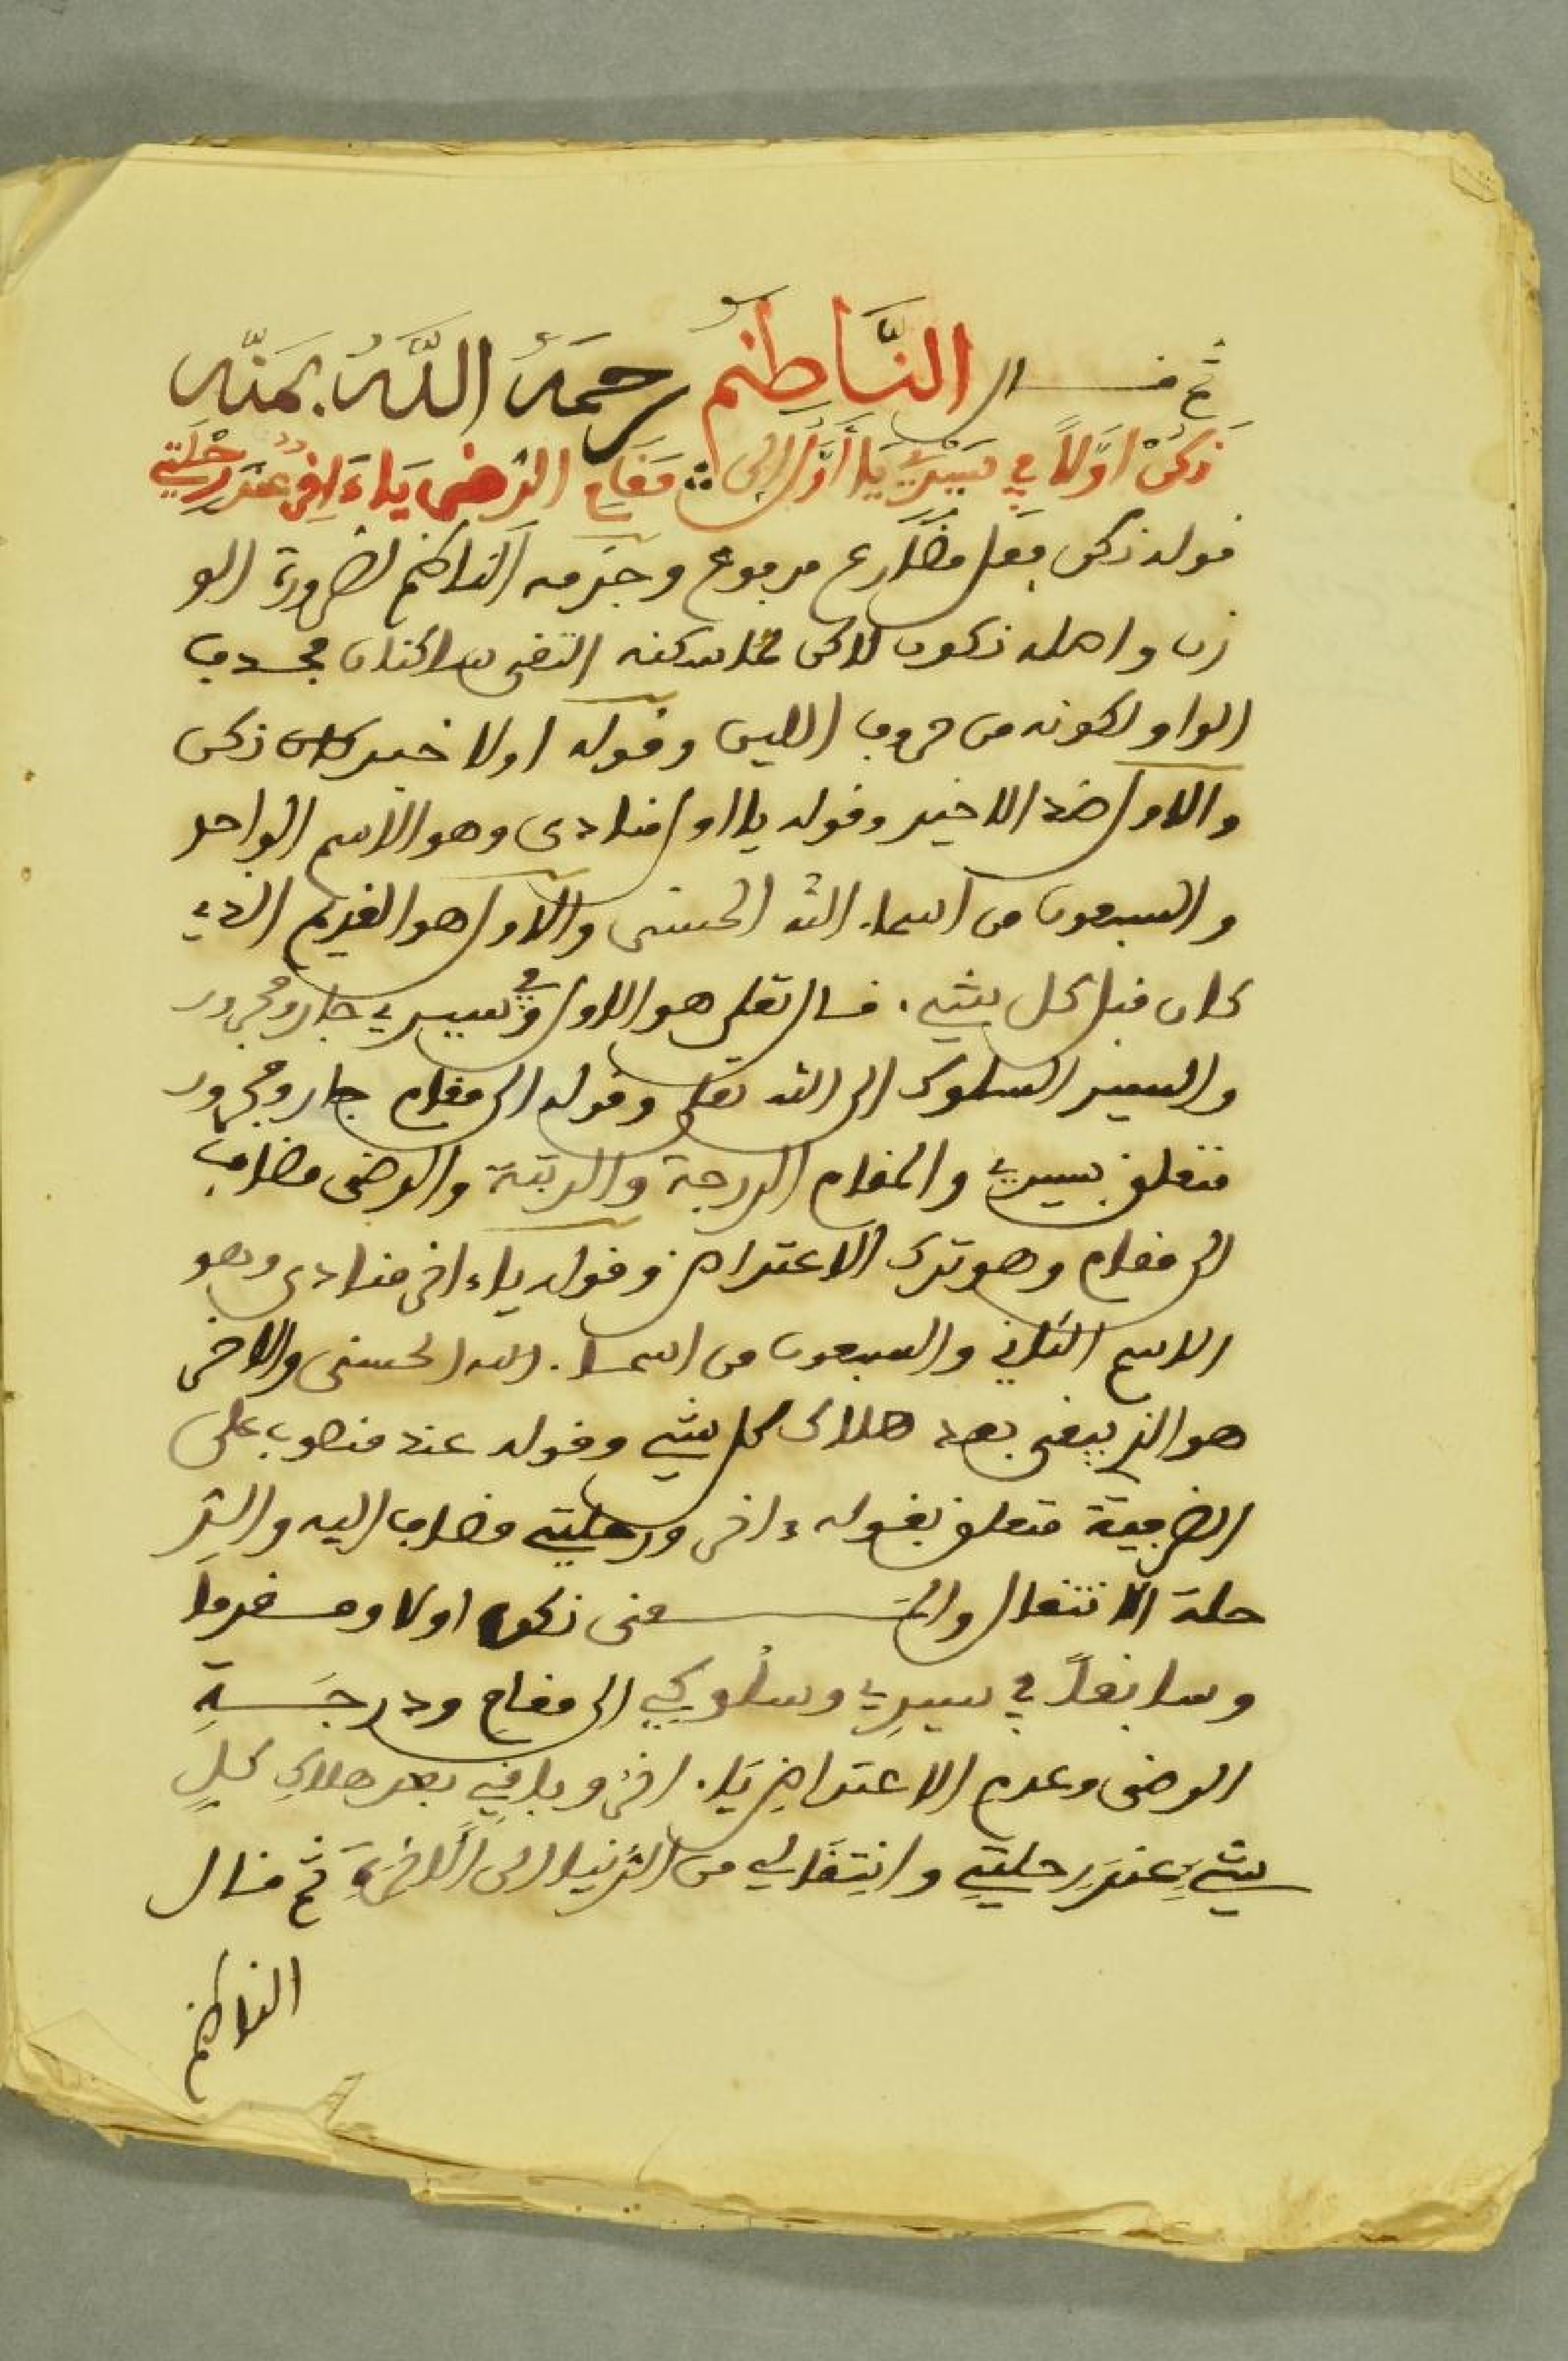 ثم قال الناظم رحمه الله بمنه
نَكُنْ اوَّلاً في سَيْرِي يَا أَوَّلُ إلى ∴ مَقَامِ الرِّضَى يَا ءَاخِرُ عِنْدَ رِحْلَتِي
قوله نكن فعل مضارع مرفوع وجزمه الناظم لضرورة الو
زن واصله نكون لاكن لما سكنه التقى ساكنان فحذف
الواو لكونه من حروف اللين وقوله اولا خبر نكن
والاول ضد الاخير وقوله يا اول منادى وهو الاسم الواحد
والسبعون من اسماء الله الحسنى والاول هو القديم الذي
كان قبل كل شيء. قال تعلى هو الاول وفي سيري جار ومجرور
والسير السلوك الى الله تعلى وقوله الى مقام جار ومجرور
متعلق بسيري والمقام الدرجة والرتبة والرضى مضاف
الى مقام وهو ترك الاعتراض وقوله يا ءاخر منادى وهو
الاسم الثاني والسبعون من اسماء الله الحسنى والاخر
هو الذي يبقى بعد هلاك كل شيء وقوله عند منصوب على
الضرفية متعلق بقوله ءاخر ورحلتي مضاف اليه والرِّ
حلة الانتقال والمعنى نكون اولا ومقدما
وسابقاً في سيرِي وسلُوكي الى مقامِ ودرجَةِ
الرضى وعدم الاعتراضِ يَا ءاخرُ وباقي بعد هلاكِ كلِّ
شيْءٍ عِندَ رحلتِي وانتِقَالِي من الدُّنيا الى الاخرَةِ ثم قال
الناظم